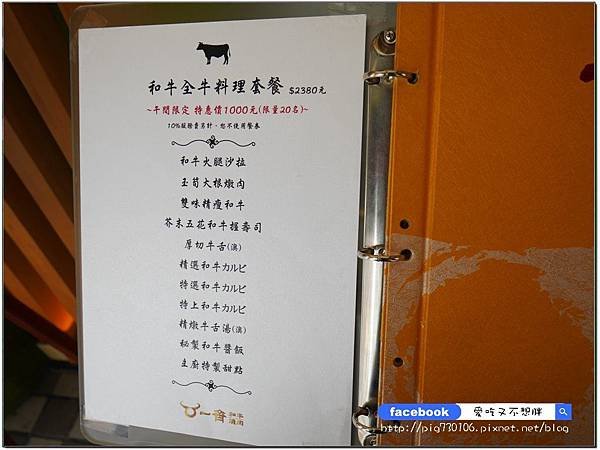 和牛全牛料理套餐 $2380元
~午間限定 特惠價1000元(限量20名)~
10%服務費另計、恕不使用餐券
和牛火腿沙拉
玉筍大根燉肉
雙味精瘦和牛
芥末五花和牛握壽司
厚切牛舌(澳)
精選和牛カルビ
特選和牛カルビ
特上和牛カルビ
精燉牛舌湯(澳)
秘製和牛醬飯
主廚特製甜點
一齋 和牛燒肉
facebook 愛吃又不想胖
http://pig730106.pixnet.net/blog